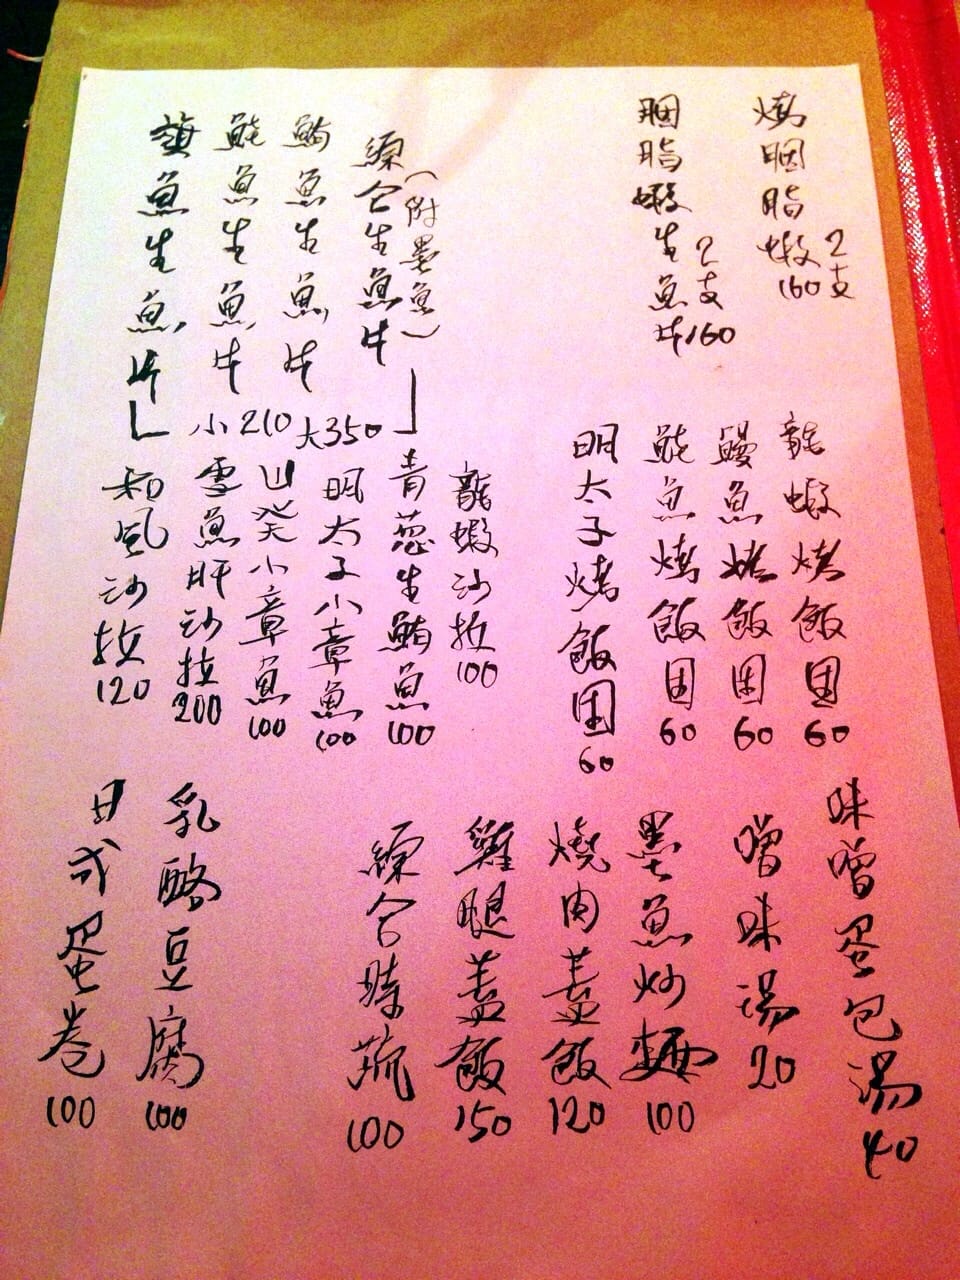 燒胭脂蝦 2支 160
胭脂蝦生魚片 2支 160
綜合生魚片（附墨魚）
鮪魚生魚片
鮭魚生魚片
旗魚生魚片
小210 大350
龍蝦烤飯囝 60
鰻魚烤飯囝 60
鮭魚烤飯囝 60
明太子烤飯囝 60
龍蝦沙拉 100
青葱生鮪魚 100
明太子小章魚 100
山葵小章魚 100
雪魚肝沙拉 200
和風沙拉 120
味噌蛋包湯 40
噌味湯 20
墨魚炒麵 100
燒肉蓋飯 120
雞腿蓋飯 150
綜合時蔬 100
乳酪豆腐 100
日式蛋卷 100